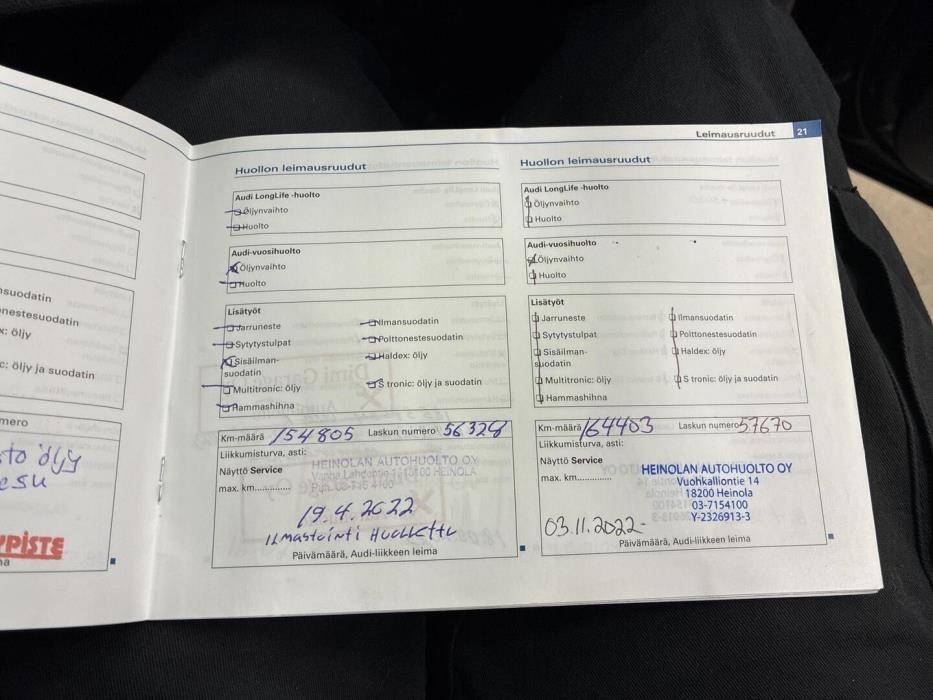 Leimausruudut 21
suodatin
nestesuodatin
x: öljy
c: öljy ja suodatin
mero
to öljy
esu
PISTE
Huollon leimausruudut
Audi LongLife -huolto
Öljynvaihto
Huolto
Audi-vuosihuolto
Öljynvaihto
Huolto
Lisätyöt
Jarruneste
Ilmansuodatin
Sytytystulpat
Polttonestesuodatin
Sisäilman-
suodatin
Haldex: öljy
Multitronic: öljy
S tronic: öljy ja suodatin
Hammashihna
Km-määrä 154805 Laskun numero 56328
Liikkumisturva, asti:
Näyttö Service
max. km.............
HEINOLAN AUTOHUOLTO OY
19.4.2022
Ilmastointi Huollettu
Päivämäärä, Audi-liikkeen leima
Huollon leimausruudut
Audi LongLife -huolto
Öljynvaihto
Huolto
Audi-vuosihuolto
Öljynvaihto
Huolto
Lisätyöt
Jarruneste
Ilmansuodatin
Sytytystulpat
Polttonestesuodatin
Sisäilman-
suodatin
Haldex: öljy
Multitronic: öljy
S tronic: öljy ja suodatin
Hammashihna
Km-määrä 164403 Laskun numero 57670
Liikkumisturva, asti:
Näyttö Service
max. km.............
HEINOLAN AUTOHUOLTO OY
Vuohkalliontie 14
18200 Heinola
03-7154100
Y-2326913-3
03.11.2022-
Päivämäärä, Audi-liikkeen leima